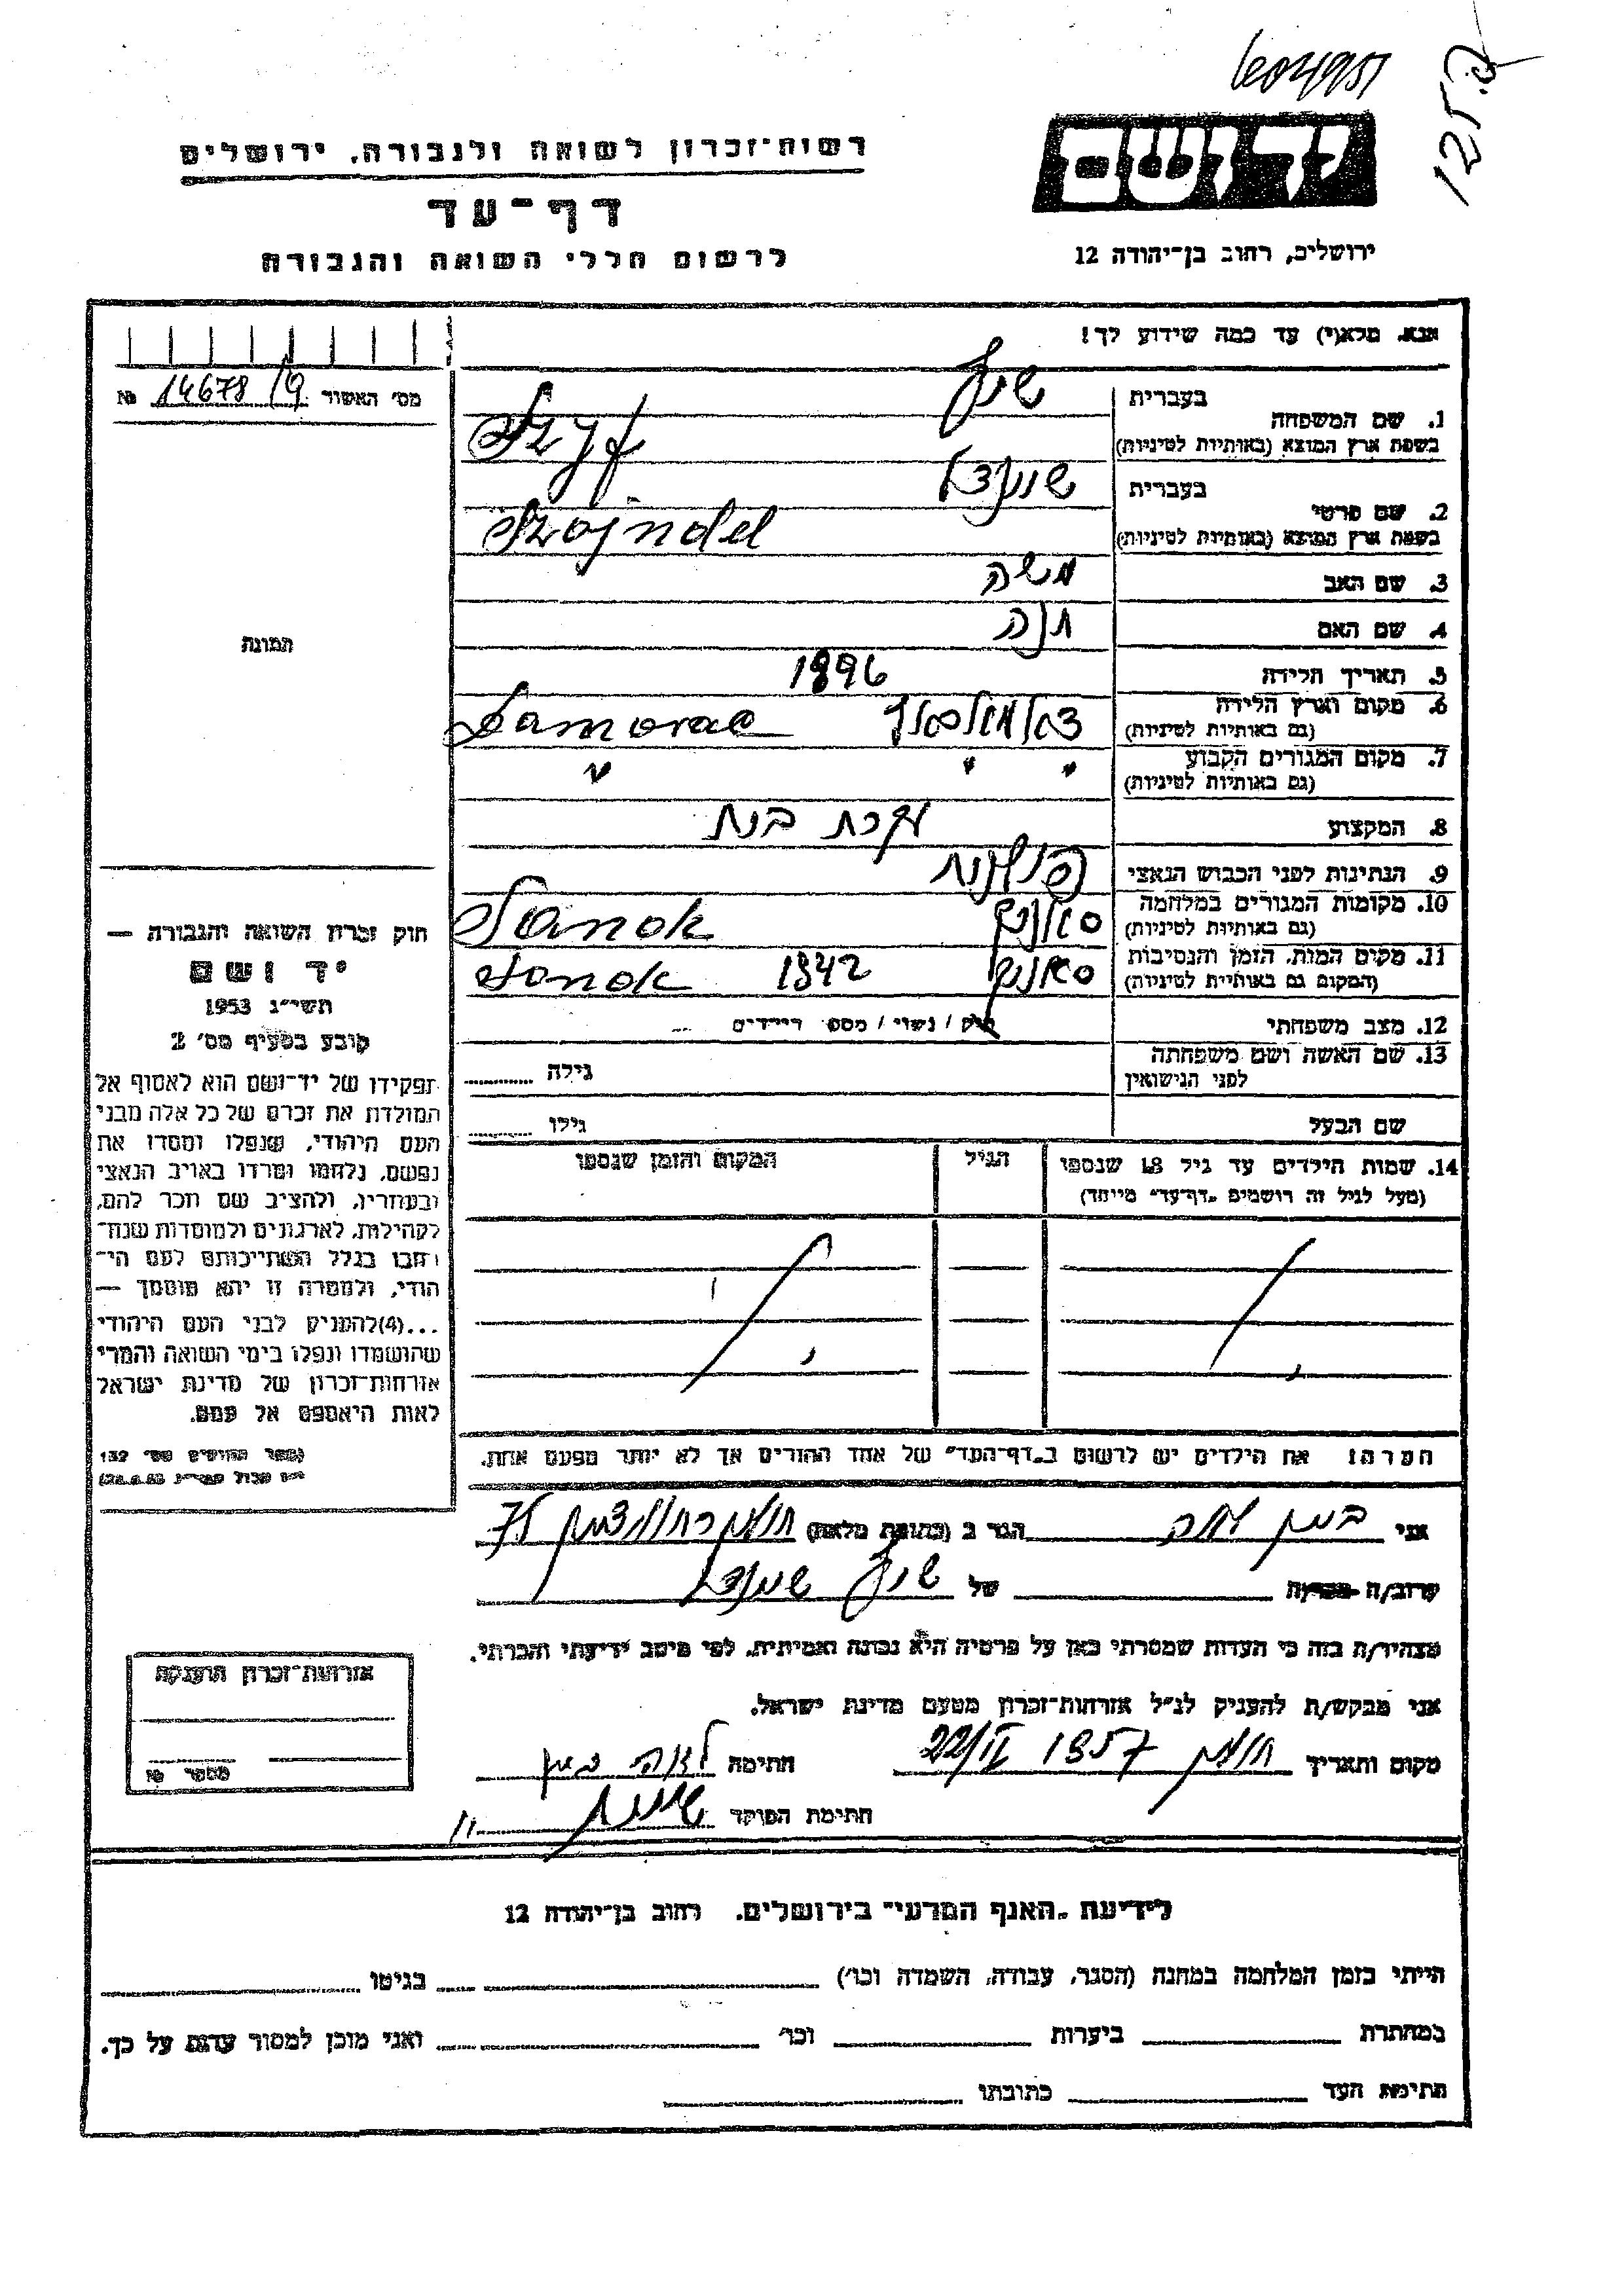 125.
יד ושם
רשות־זכרון לשואה ולגבורה, ירושלים
דף־עד
לרשום חללי השואה והגבורה
ירושלים, רחוב בן־יהודה 12
אנא, מלא(י) עד כמה שידוע לך!
מס׳ האשור 14678/9 №
1. שם המשפחה בעברית שיף
בשפת ארץ המוצא (באותיות לטיניות) Szyf
2. שם פרטי בעברית שיינדל
בשפת ארץ המוצא (באותיות לטיניות) Szajndel
3. שם האב משה
4. שם האם חנה
5. תאריך הלידה 1896
6. מקום וארץ הלידה
(גם באותיות לטיניות)
7. מקום המגורים הקבוע " " "
(גם באותיות לטיניות)
8. המקצוע עקרת בית
9. הנתינות לפני הכבוש הנאצי פולנית
10. מקומות המגורים במלחמה סאנוק Sanok
(גם באותיות לטיניות)
11. מקום המות, הזמן והנסיבות סאנוק 1942 Sanok
(המקום גם באותיות לטיניות)
12. מצב משפחתי רווק / נשוי / מספר הילדים
13. שם האשה ושם משפחתה
לפני הנישואין גילה
שם הבעל גילו
14. שמות הילדים עד גיל 18 שנספו הגיל המקום והזמן שנספו
(מעל לגיל זה רושמים „דף־עד" מיוחד)
הערה: את הילדים יש לרשום ב„דף־העד" של אחד ההורים אך לא יותר מפעם אחת.
תמונה
חוק זכרון השואה והגבורה —
יד ושם
תשי״ג 1953
קובע בסעיף מס׳ 2
תפקידו של יד־ושם הוא לאסוף אל
המולדת את זכרם של כל אלה מבני
העם היהודי, שנפלו ומסרו את
נפשם, נלחמו ומרדו באויב הנאצי
ובעוזריו, ולהציב שם וזכר להם,
לקהילות, לארגונים ולמוסדות שנח־
רבו בגלל השתייכותם לעם הי־
הודי, ולמטרה זו יהא מוסמך —
...(4)להעניק לבני העם היהודי
שהושמדו ונפלו בימי השואה והמרי
אזרחות־זכרון של מדינת ישראל
לאות היאספם אל עמם.
(ספר החוקים מס׳ 132
אני הגר ב (כתובת מלאה)
קרוב/ה מכר/ה של שיף שיינדל
מצהיר/ה בזה כי העדות שמסרתי כאן על פרטיה היא נכונה ואמיתית, לפי מיטב ידיעתי והכרתי.
אני מבקש/ת להעניק לנ״ל אזרחות־זכרון מטעם מדינת ישראל.
מקום ותאריך חולון 1957 חתימה
חתימת הפוקד
אזרחות־זכרון הוענקה
מספר
לידיעת „האגף המדעי" בירושלים, רחוב בן־יהודה 12
הייתי בזמן המלחמה במחנה (הסגר, עבודה, השמדה וכו׳) בגיטו
במחתרת ביערות וכו׳ ואני מוכן למסור עדות על כך.
חתימת העד כתובתו